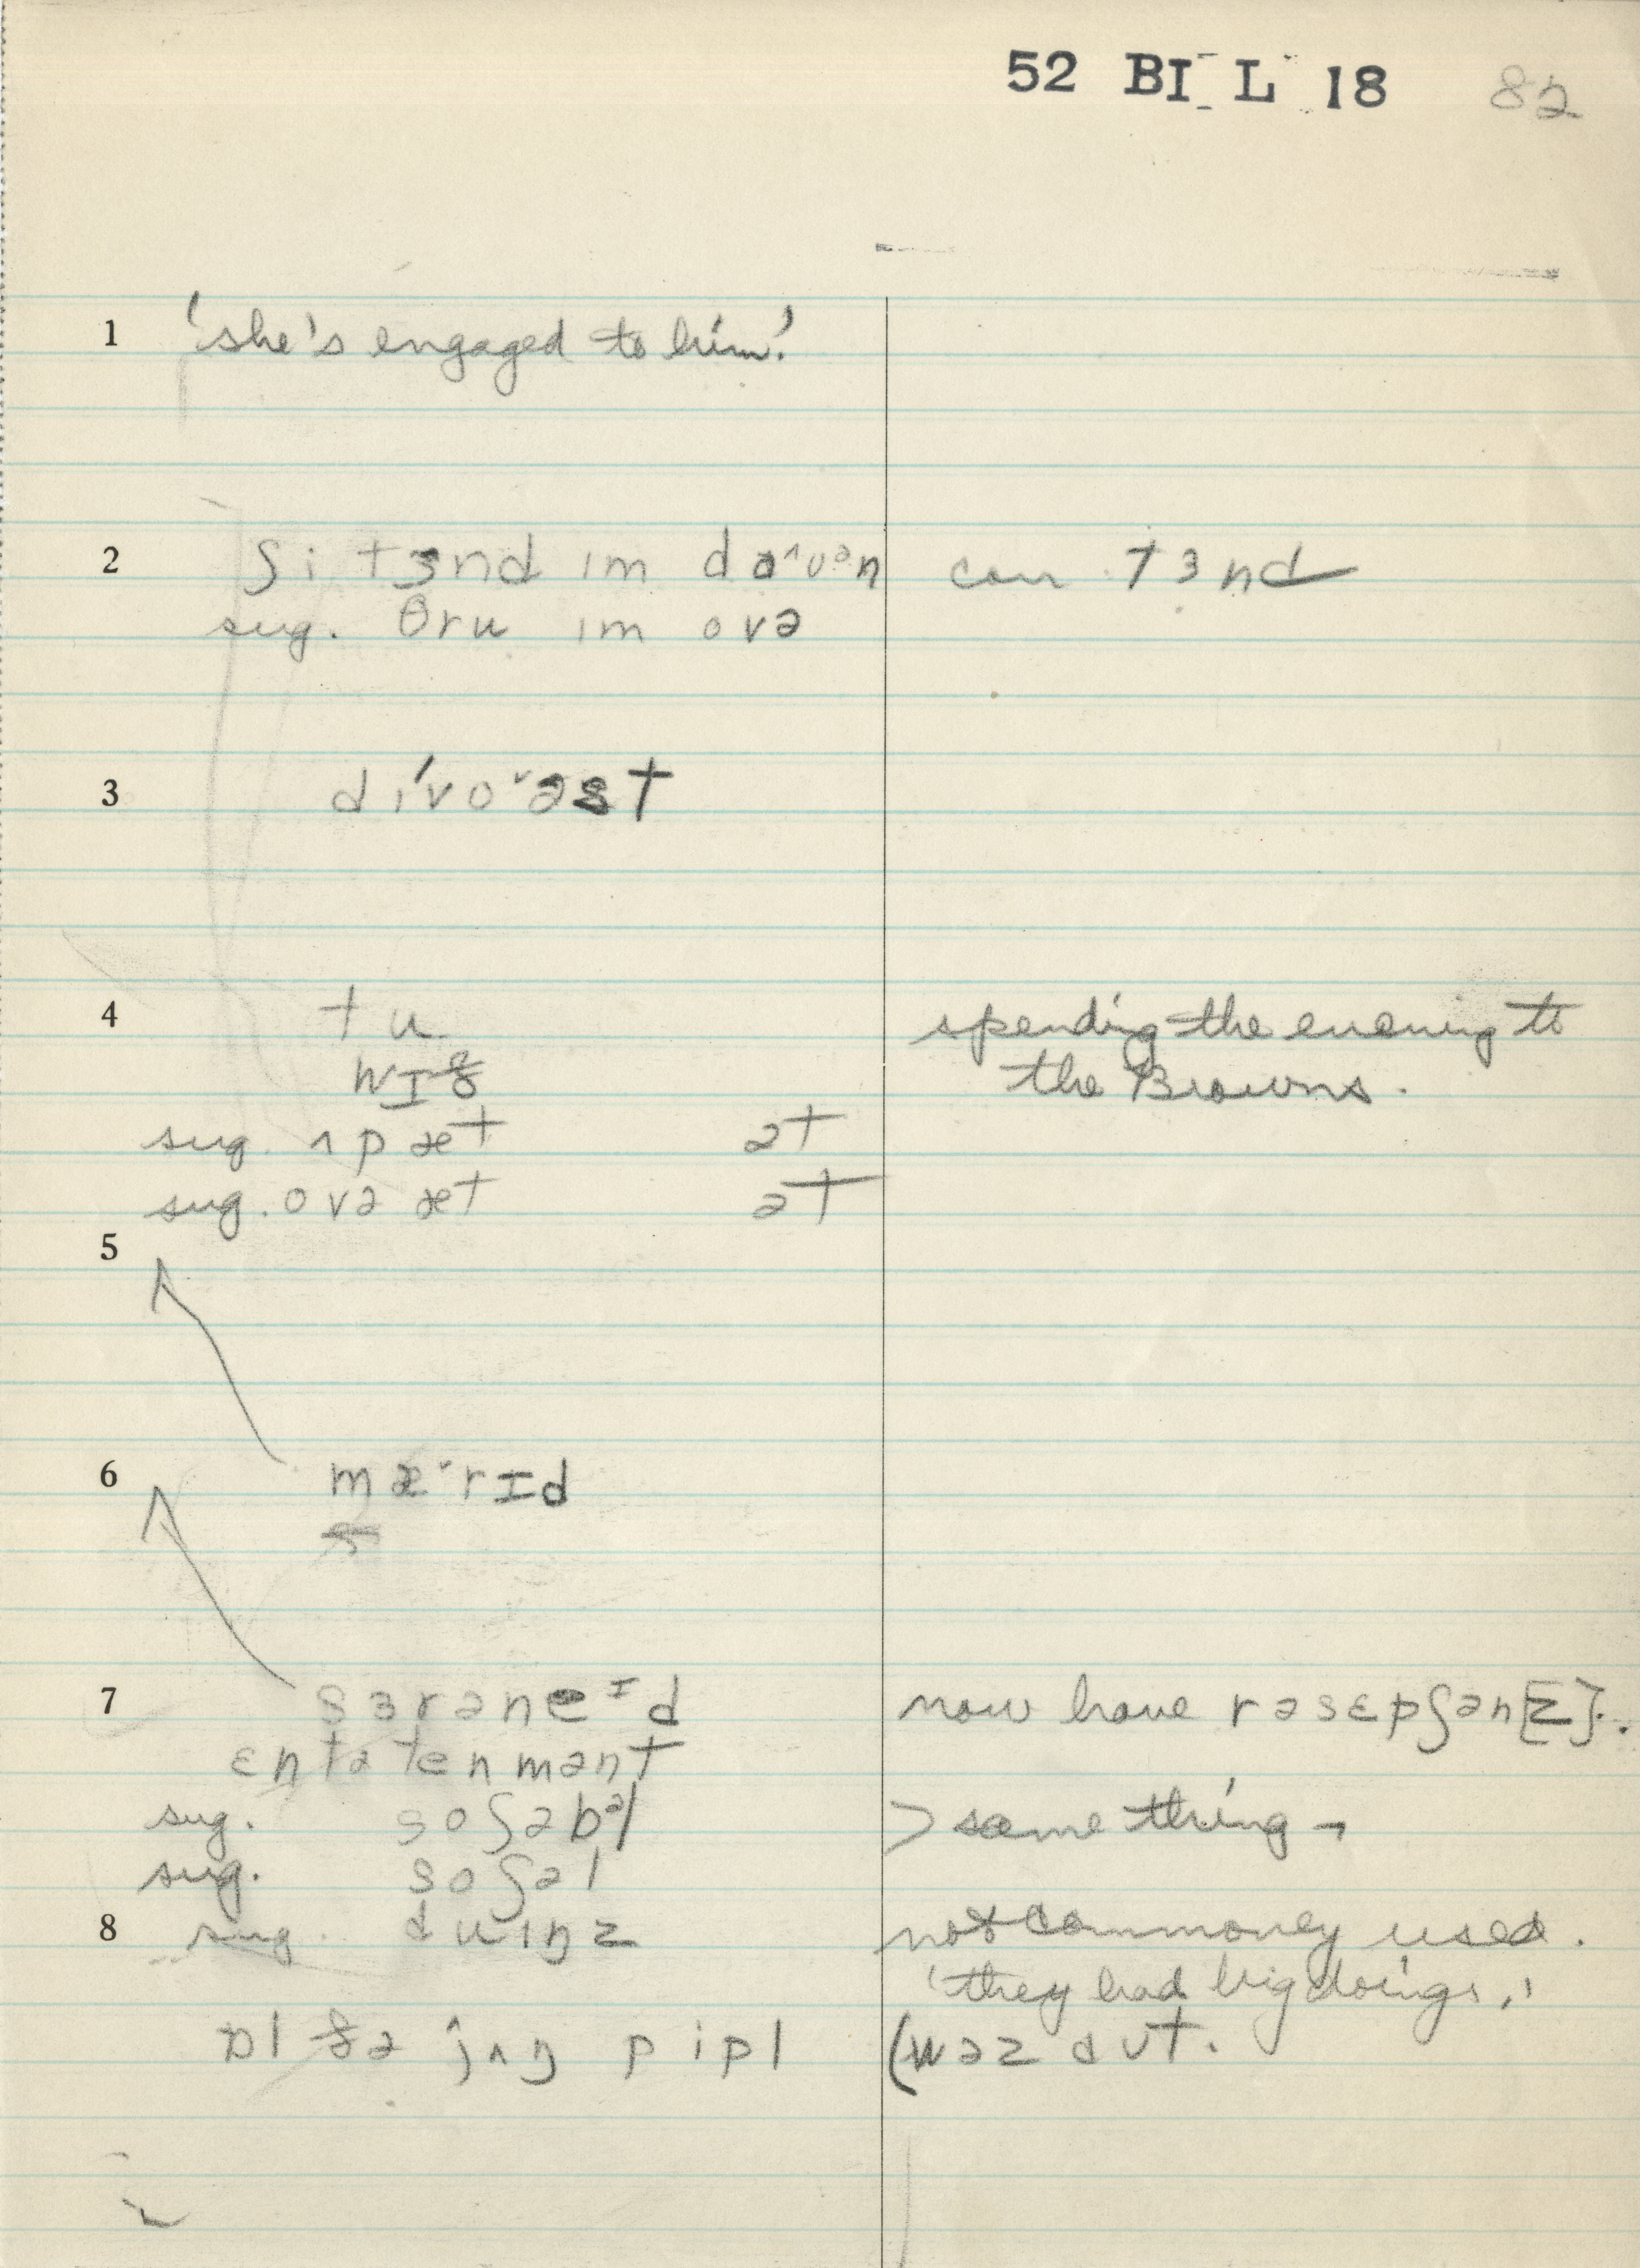 52 BI L 18 82
1 'she's engaged to him.'
2 ʃi tɜnd ɪm dɑ^ʊən con. tɜnd
sug. θru ɪm ovə
3 dɪ'voˇəst
4 tu spending the evening to
wɪð the Browns.
sug. ʌp æt ət
sug. ovə æt ət
5
6 mæˇrɪd
7 sɜrəneɪd now have rəsɛpʃən[z].
ɛntətenmənt
sug. soʃəbəl > same thing
sug. soʃəl
8 sug. duɪŋz not commonly used.
'they had big doings.'
ɒl ðə jʌŋ pipl (wəz aʊt.